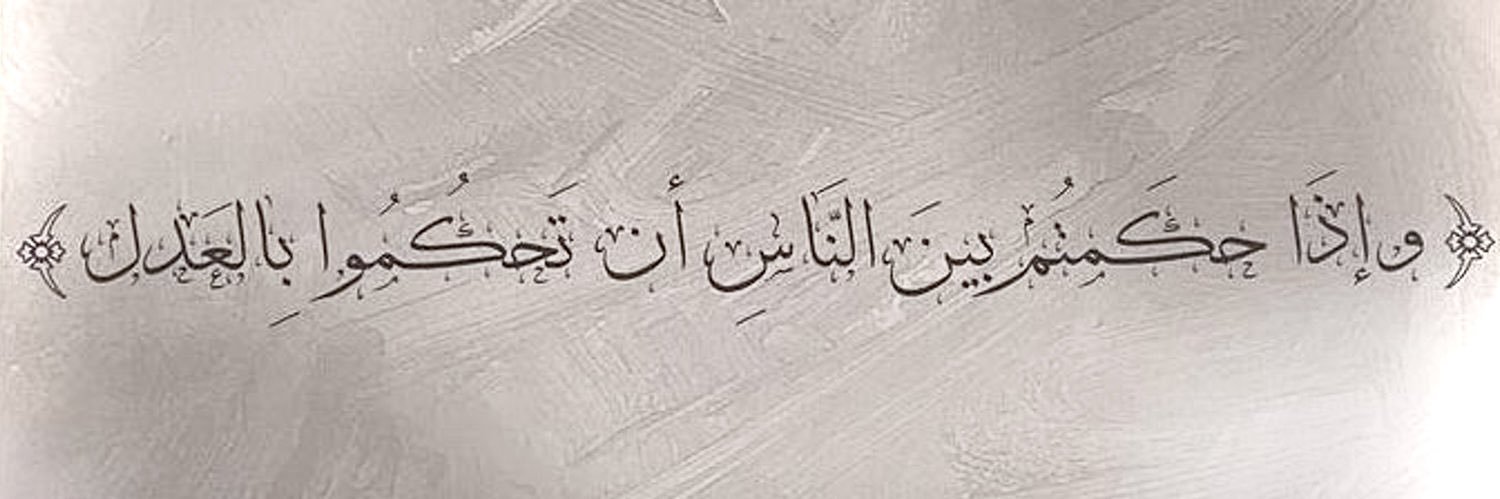 ﴿ وإذَا حكَمتُم بينَ النَّاسِ أَن تَحكُمُوا بِالعَدل ﴾